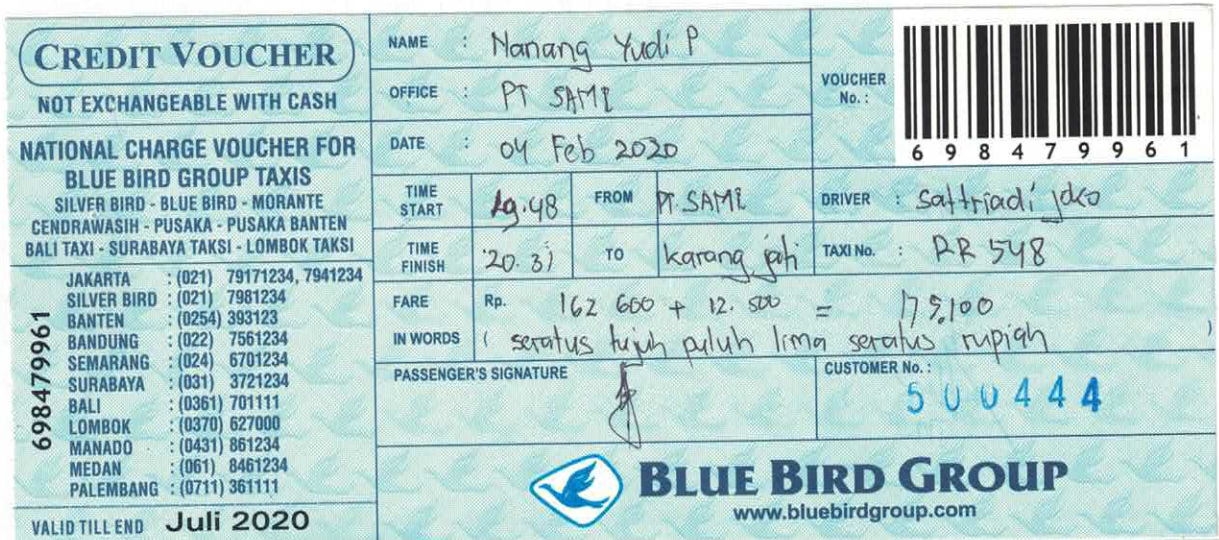 CREDIT VOUCHER
NOT EXCHANGEABLE WITH CASH
NATIONAL CHARGE VOUCHER FOR
BLUE BIRD GROUP TAXIS
SILVER BIRD - BLUE BIRD - MORANTE
CENDRAWASIH - PUSAKA - PUSAKA BANTEN
BALI TAXI - SURABAYA TAKSI - LOMBOK TAKSI
698479961
JAKARTA : (021) 79171234, 7941234
SILVER BIRD : (021) 7981234
BANTEN : (0254) 393123
BANDUNG : (022) 7561234
SEMARANG : (024) 6701234
SURABAYA : (031) 3721234
BALI : (0361) 701111
LOMBOK : (0370) 627000
MANADO : (0431) 861234
MEDAN : (061) 8461234
PALEMBANG : (0711) 361111
VALID TILL END Juli 2020
NAME : Nanang Yudi P
OFFICE : PT SAMI
DATE : 04 Feb 2020
VOUCHER No. :
6 9 8 4 7 9 9 9 6 1
TIME START 19.48 FROM PT. SAMI DRIVER : Sattriadi joko
TIME FINISH 20.31 TO karang jati TAXI No. : RR 548
FARE Rp. 162 600 + 12.500 = 175,100
IN WORDS ( seratus tujuh puluh lima seratus rupiah )
PASSENGER'S SIGNATURE
CUSTOMER No. :
500444
BLUE BIRD GROUP
www.bluebirdgroup.com